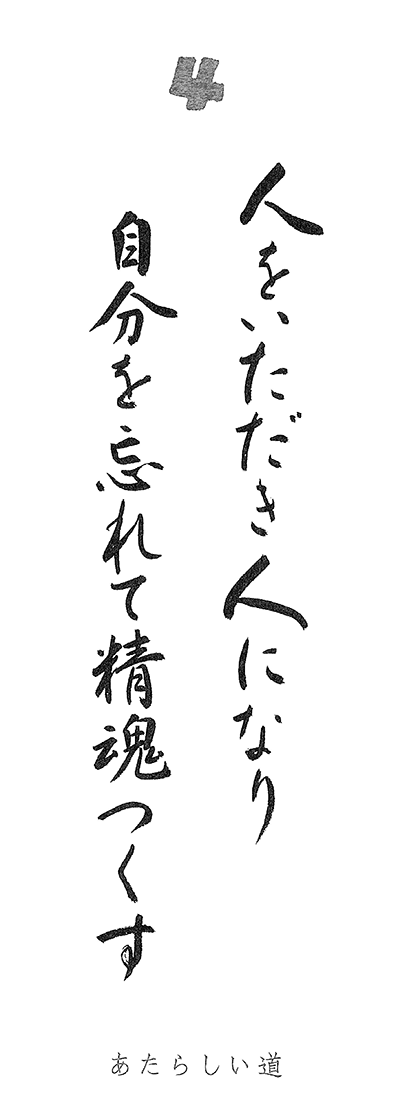 4
人をいただき人になり
自分を忘れて精魂つくす
あたらしい道